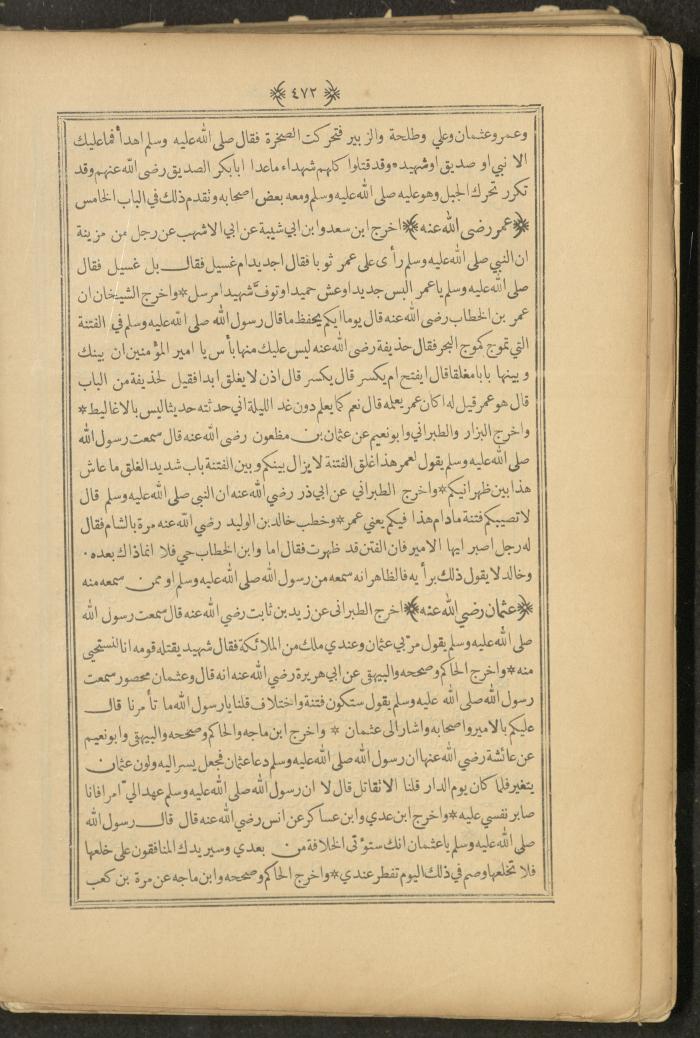 ﴿ ٤٧٢ ﴾
وعمر وعثمان وعلي وطلحة والزبير فتحركت الصخرة فقال صلى الله عليه وسلم اهدأ فما عليك
الا نبي او صديق او شهيد * وقد قتلوا كلهم شهداء ما عدا ابا بكر الصديق رضى الله عنهم وقد
تكرر تحرك الجبل وهو عليه صلى الله عليه وسلم ومعه بعض اصحابه وتقدم ذلك في الباب الخامس
﴿ عمر رضى الله عنه ﴾ اخرج ابن سعد وابن ابي شيبة عن ابي الاشهب عن رجل من مزينة
ان النبي صلى الله عليه وسلم رأى على عمر ثوبا فقال اجديد ام غسيل فقال بل غسيل فقال
صلى الله عليه وسلم يا عمر البس جديدا وعش حميدا وتوفَّ شهيدا مرسل * واخرج الشيخان ان
عمر بن الخطاب رضى الله عنه قال يوما ايكم يحفظ ما قال رسول الله صلى الله عليه وسلم في الفتنة
التي تموج كموج البحر فقال حذيفة رضى الله عنه ليس عليك منها بأس يا امير المؤمنين ان بينك
وبينها بابا مغلقا قال ايفتح ام يكسر قال يكسر قال اذن لا يغلق ابدا فقيل لحذيفة من الباب
قال هو عمر قيل له اكان عمر يعلمه قال نعم كما يعلم دون غد الليلة اني حدثته حديثا ليس بالاغاليط *
واخرج البزار والطبراني وابو نعيم عن عثمان بن مظعون رضى الله عنه قال سمعت رسول الله
صلى الله عليه وسلم يقول لعمر هذا غلق الفتنة لا يزال بينكم وبين الفتنة باب شديد الغلق ما عاش
هذا بين ظهرانيكم * واخرج الطبراني عن ابي ذر رضي الله عنه ان النبي صلى الله عليه وسلم قال
لا تصيبكم فتنة ما دام هذا فيكم يعني عمر * وخطب خالد بن الوليد رضي الله عنه مرة بالشام فقال
له رجل اصبر ايها الامير فان الفتن قد ظهرت فقال اما وابن الخطاب حي فلا انما ذاك بعده .
وخالد لا يقول ذلك برأيه فالظاهر انه سمعه من رسول الله صلى الله عليه وسلم او ممن سمعه منه
﴿ عثمان رضي الله عنه ﴾ اخرج الطبراني عن زيد بن ثابت رضي الله عنه قال سمعت رسول الله
صلى الله عليه وسلم يقول مرّ بي عثمان وعندي ملك من الملائكة فقال شهيد يقتله قومه انا لنستحيي
منه * واخرج الحاكم وصححه والبيهقي عن ابي هريرة رضي الله عنه انه قال وعثمان محصور سمعت
رسول الله صلى الله عليه وسلم يقول ستكون فتنة واختلاف قلنا يا رسول الله ما تأمرنا قال
عليكم بالامير واصحابه واشار الى عثمان * واخرج ابن ماجه والحاكم وصححه والبيهقي وابو نعيم
عن عائشة رضي الله عنها ان رسول الله صلى الله عليه وسلم دعا عثمان فجعل يسر اليه ولون عثمان
يتغير فلما كان يوم الدار قلنا الا تقاتل قال لا ان رسول الله صلى الله عليه وسلم عهد اليّ امرا فانا
صابر نفسي عليه * واخرج ابن عدي وابن عساكر عن انس رضي الله عنه قال قال رسول الله
صلى الله عليه وسلم يا عثمان انك ستؤتى الخلافة من بعدي وسيريدك المنافقون على خلعها
فلا تخلعها وصم في ذلك اليوم تفطر عندي * واخرج الحاكم وصححه وابن ماجه عن مرة بن كعب